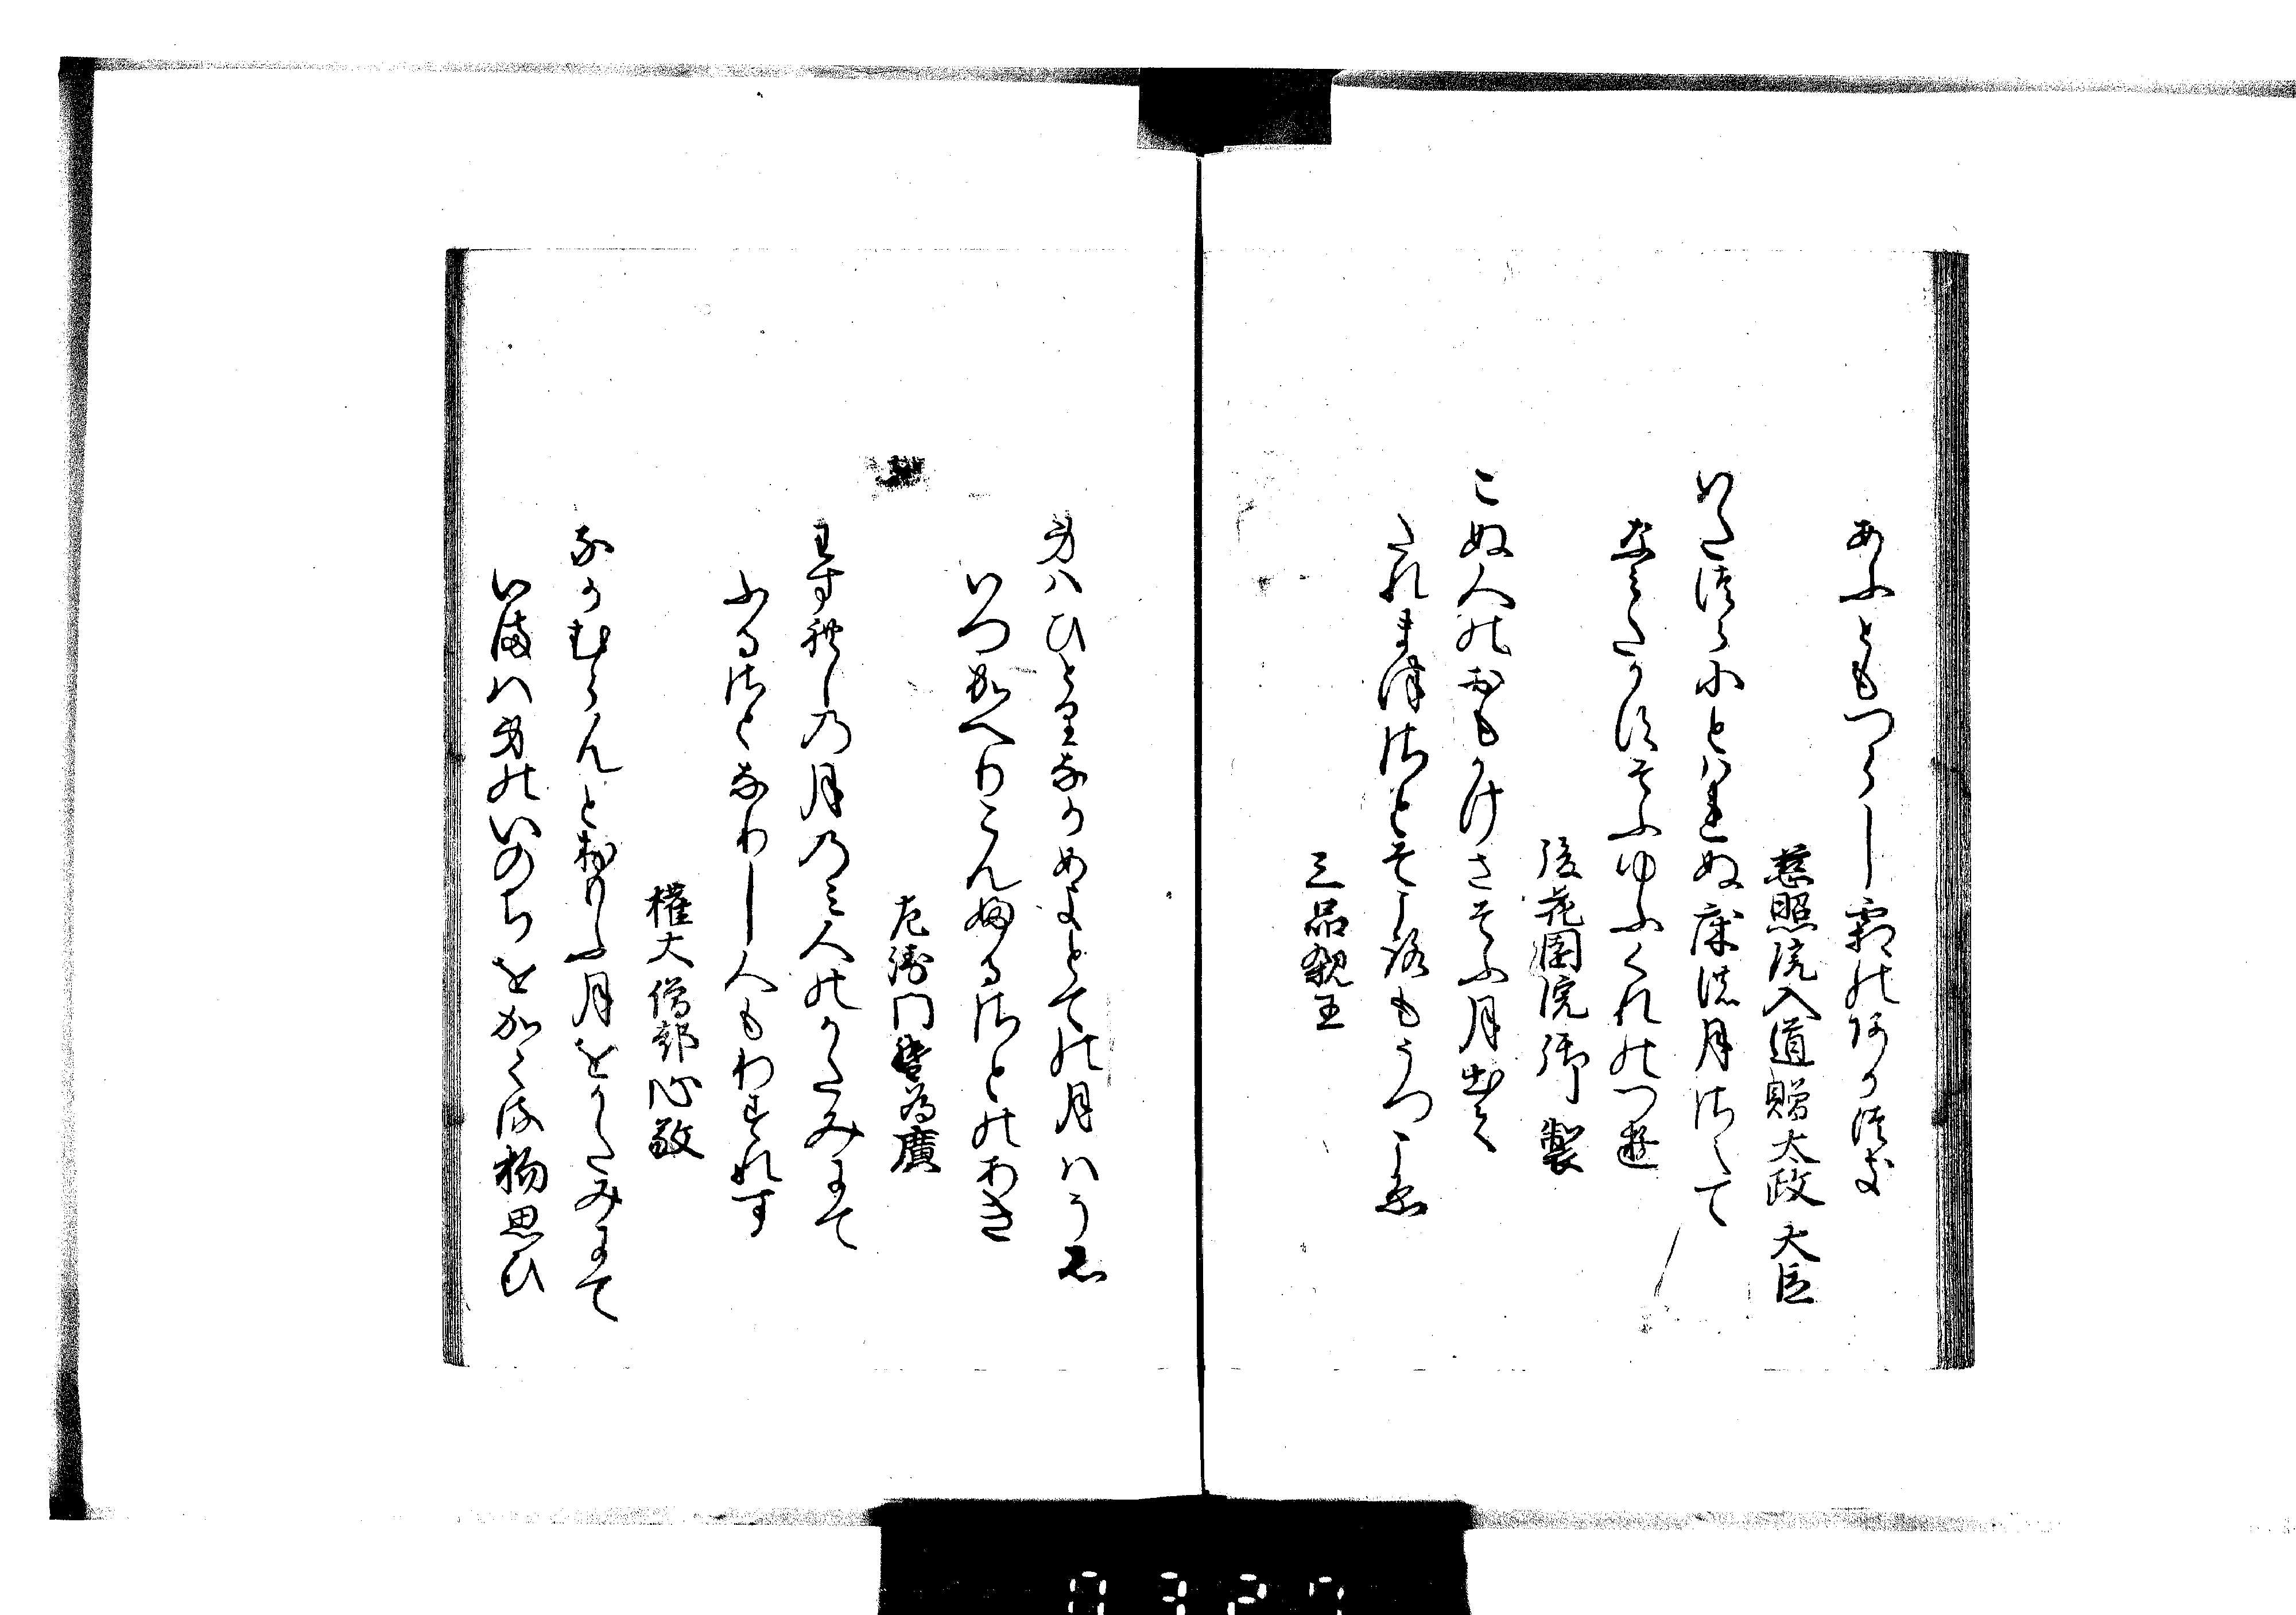 あふともつらし霜のあかつき
慈照院入道贈太政大臣
いたつらにとはれぬ床の月さして
なみたかすそふゆふくれのつゆ
後花園院御製
こぬ人のおもかけさそふ月出て
たれまつさとそころもうつこゑ
三品親王
身ハひとりなかめよとての月ハうし
いつかへりこんふるさとのあき
左衛門督為廣
わすれしの月のみ人のかたみにて
ふるさとなりし人もわすれす
権大僧都心敬
なかむらんとおもふ月をかたみにて
いまハ身のいのちをかくる物思ひ